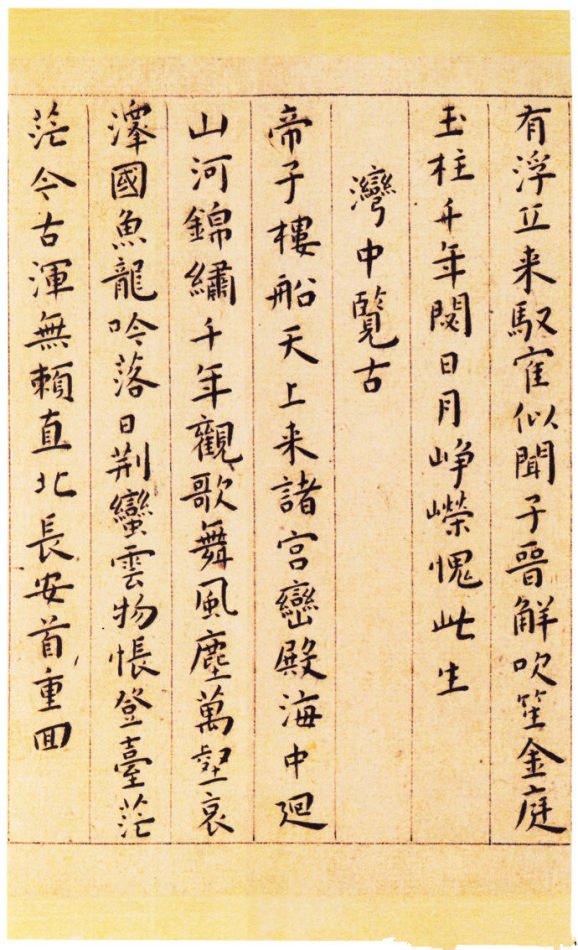 有浮丘来馭寉似聞子晉解吹笙金庭
玉柱千年閟日月崢嶸愧此生
灣中覽古
帝子樓船天上来諸宮巒殿海中廻
山河錦繡千年觀歌舞風塵萬壑哀
澤國魚龍吟落日荆蠻雲物悵登臺茫
茫今古渾無賴直北長安首重囬